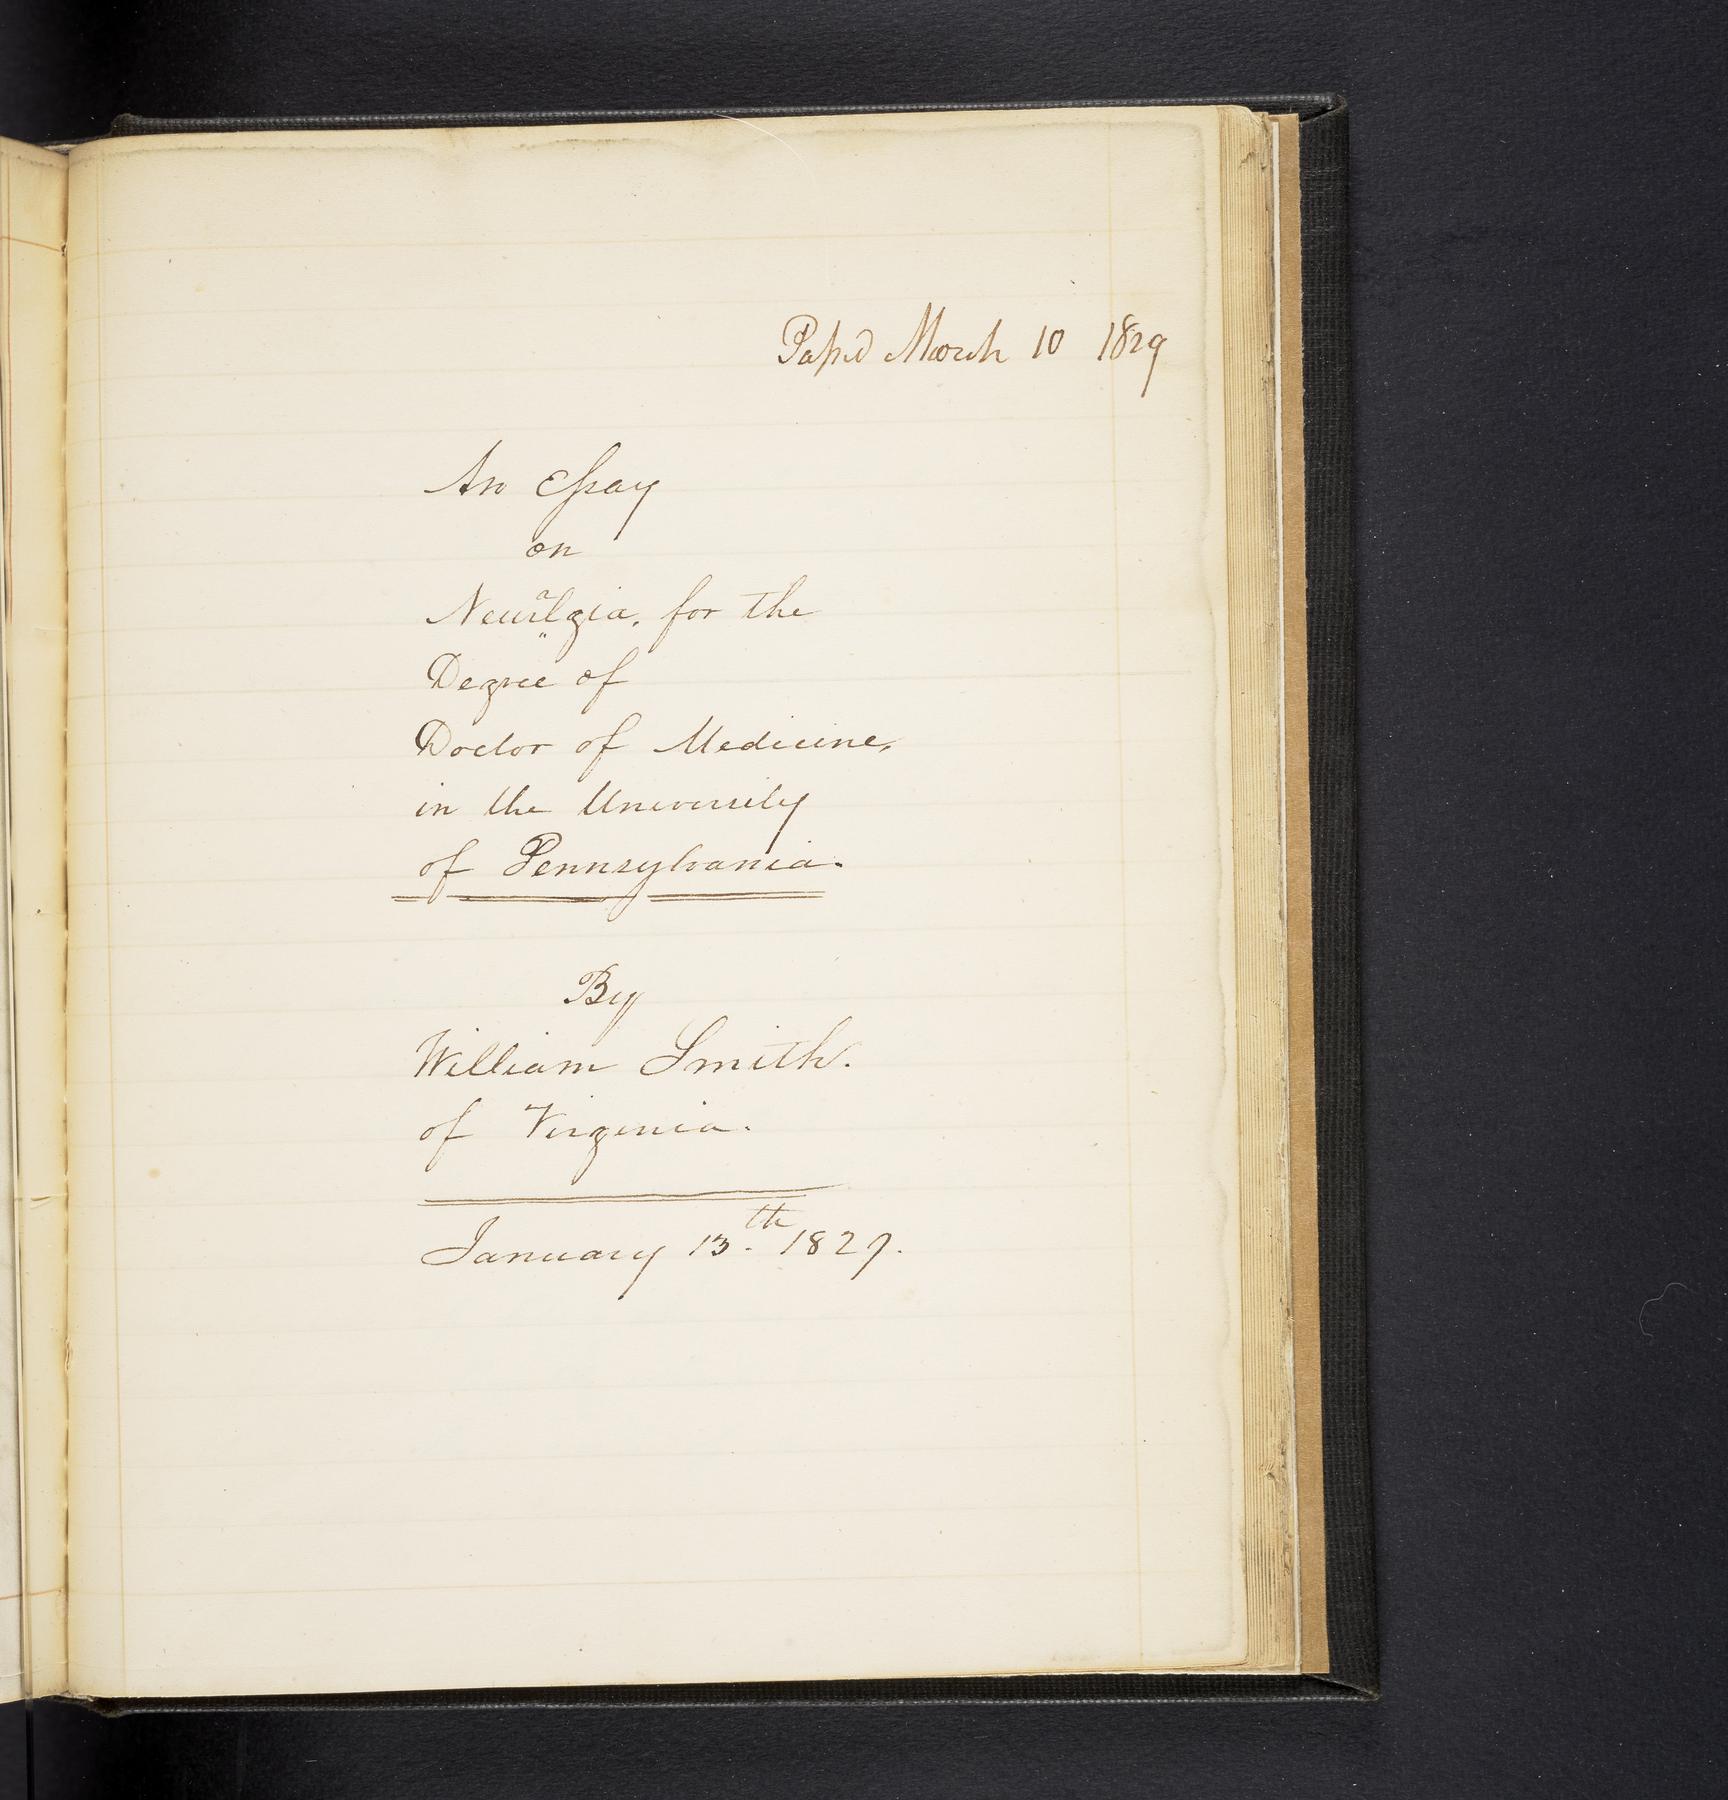 Passed March 10 1829
An Essay
on
Neuralgia, for the
Degree of
Doctor of Medicine,
in the University
of Pennsylvania.
By
William Smith.
of Virginia.
January 13.th 1829.